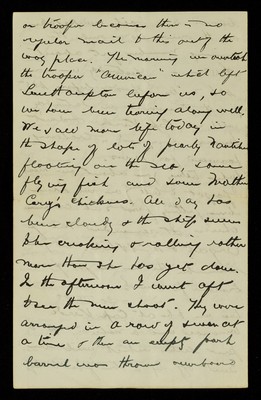 or trooper because there is no
regular mail to this out of the
way place. This morning we overtook
the trooper "America" which left
Southampton before us, so
we have been tearing along well.
We saw more life today in
the shape of lots of pearly Nautilus
floating on the sea, some
flying fish and some Mother
Cary's chickens. All day has
been cloudy & the ship seems
to be creaking & rolling rather
more than she has yet done.
In the afternoon I went aft
to see the men shoot. They were
arranged in a row of seven at
a time & then an empty pork
barrel was thrown overboard